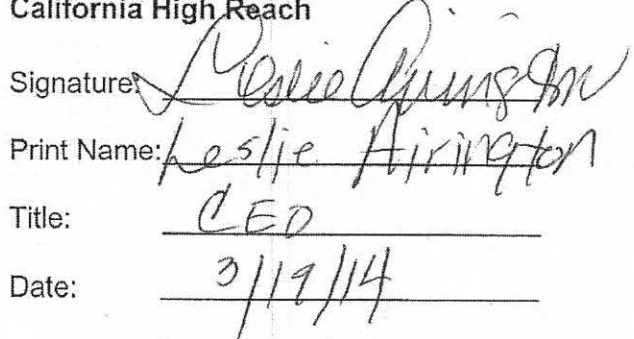 California High Reach
Signature: Leslie Airington
Print Name: Leslie Airington
Title: CEO
Date: 3/19/14